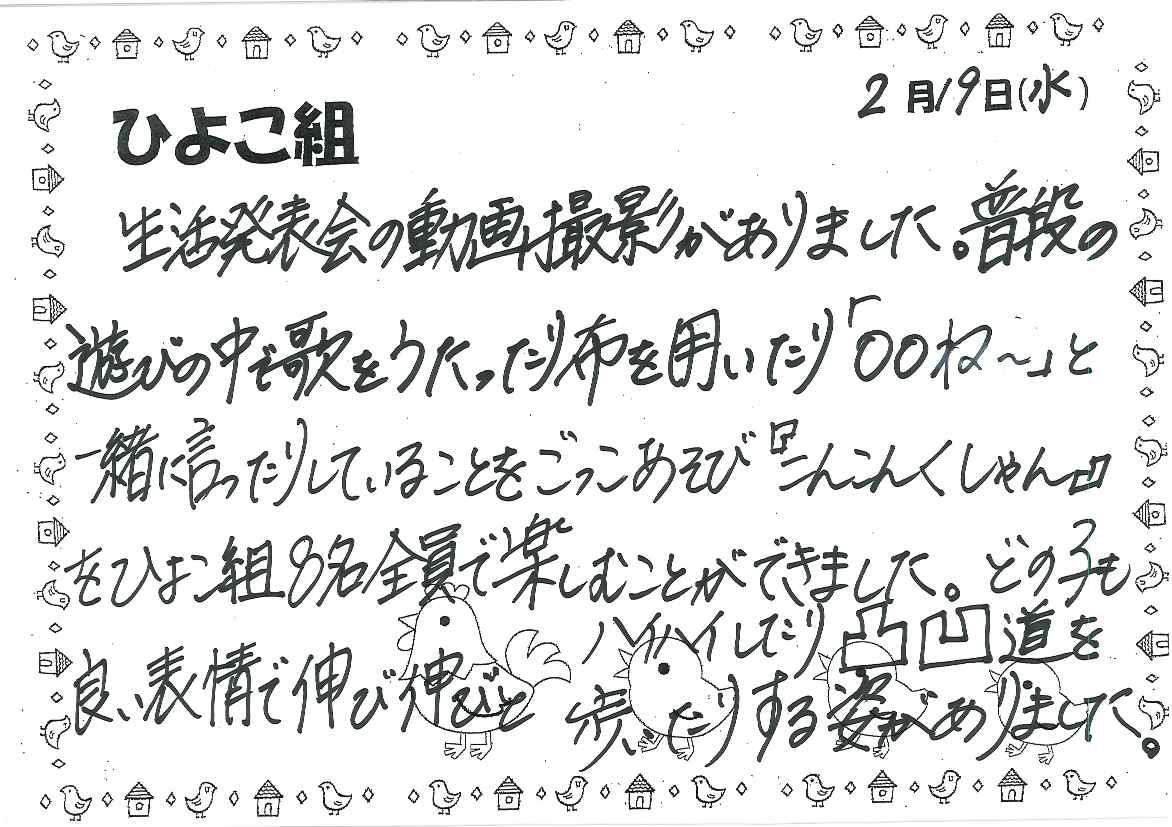 2月19日(水)
ひよこ組
生活発表会の動画撮影がありました。普段の
遊びの中で歌をうたったり布を用いたり「〇〇ね〜」と
一緒に言ったりしていることをごっこあそび『こんこんくしゃん』
をひよこ組8名全員で楽しむことができました。どの子も
良い表情で伸び伸びと
ハイハイしたり凸凹道を
歩いたりする姿がありました。